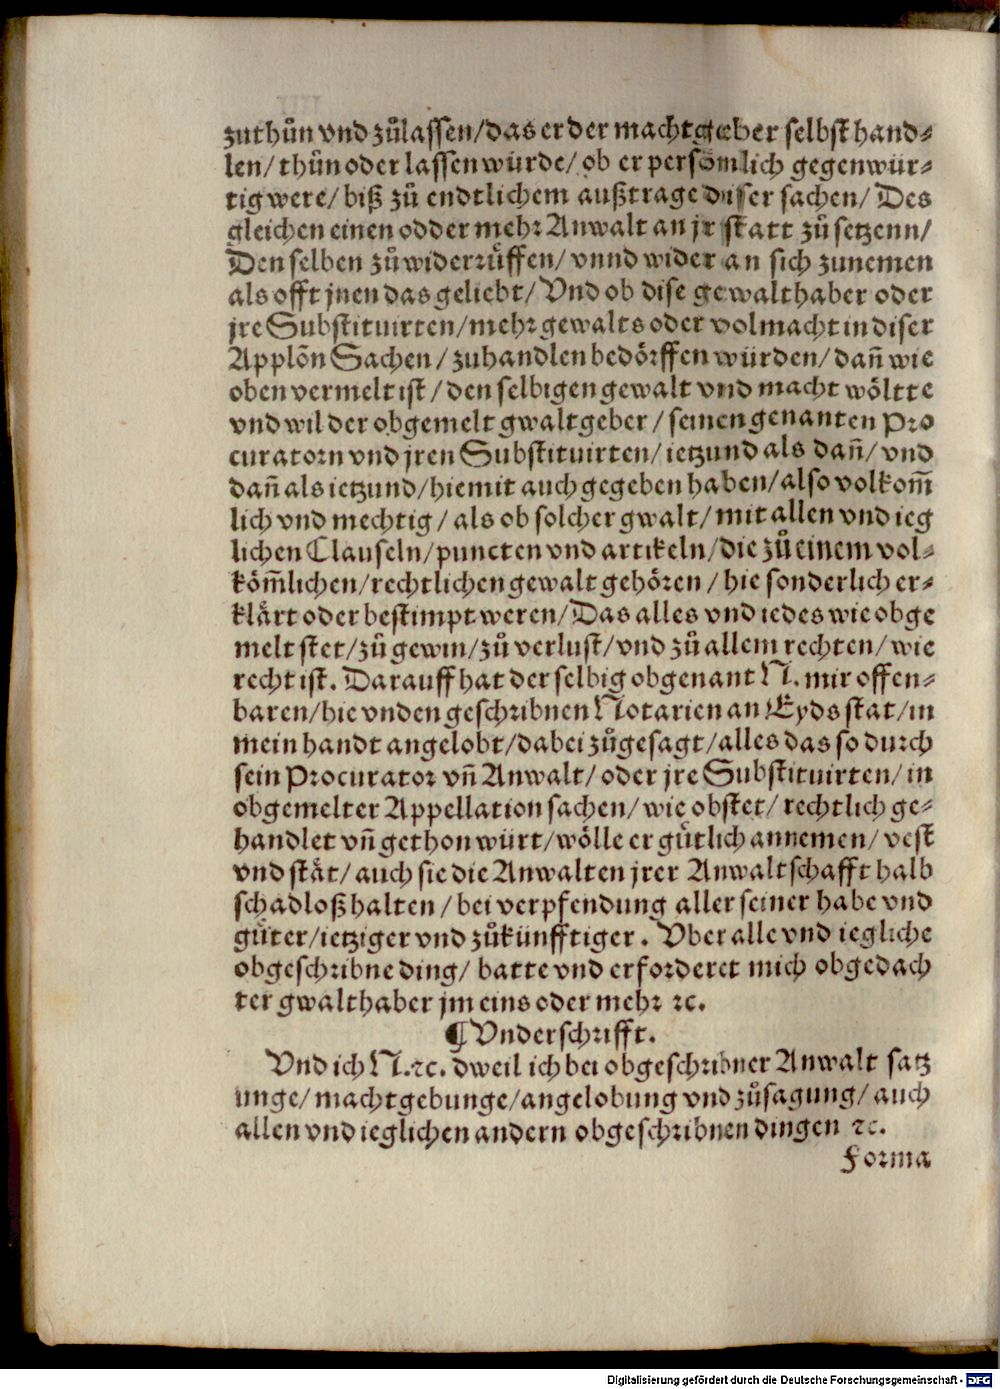 zuthůn vnd zůlassen/das er der machtgeber selbst hand⸗
len/thůn oder lassen würde/ ob er persönlich gegenwür⸗
tig were/ biß zů endtlichem außtrage diser sachen/ Des
gleichen einen odder mehr Anwalt an jr statt zů setzenn/
Den selben zů widerrůffen/ vnnd wider an sich zunemen
als offt jnen das geliebt/ Vnd ob dise gewalthaber oder
jre Substituirten/mehr gewalts oder volmacht in diser
Applõn Sachen/ zuhandlen bedörffen würden/ dañ wie
oben vermelt ist/ den selbigen gewalt vnd macht wöltte
vnd wil der obgemelt gwaltgeber/ seinen genanten Pro
curatorn vnd jren Substituirten/ ietzund als dañ/ vnd
dañ als ietzund/hiemit auch gegeben haben/also volkom̃
lich vnd mechtig/ als ob solcher gwalt/ mit allen vnd ieg
lichen Clauseln/puncten vnd artikeln/die zů einem vol⸗
köm̃lichen/rechtlichen gewalt gehören/ hie sonderlich er⸗
klärt oder bestimpt weren/ Das alles vnd iedes wie obge
melt stet/zů gewin/zů verlust/vnd zů allem rechten/ wie
recht ist. Darauff hat der selbig obgenant N. mir offen⸗
baren/hie vnden geschribnen Notarien an Eyds stat/in
mein handt angelobt/dabei zůgesagt/alles das so durch
sein Procurator vñ Anwalt/ oder jre Substituirten/ in
obgemelter Appellation sachen/ wie obstet/ rechtlich ge⸗
handlet vñ gethon würt/wölle er gütlich annemen/ vest
vnd stät/ auch sie die Anwalten jrer Anwaltschafft halb
schadloß halten/ bei verpfendung aller seiner habe vnd
güter/ietziger vnd zůkünfftiger. Vber alle vnd iegliche
obgeschribne ding/ batte vnd erforderet mich obgedach
ter gwalthaber jm eins oder mehr ꝛc.
¶ Vnderschrifft.
Vnd ich N.ꝛc. dweil ich bei obgeschribner Anwalt satz
unge/ machtgebunge/angelobung vnd zůsagung/ auch
allen vnd ieglichen andern obgeschribnen dingen ꝛc.
Forma
Digitalisierung gefördert durch die Deutsche Forschungsgemeinschaft - DFG